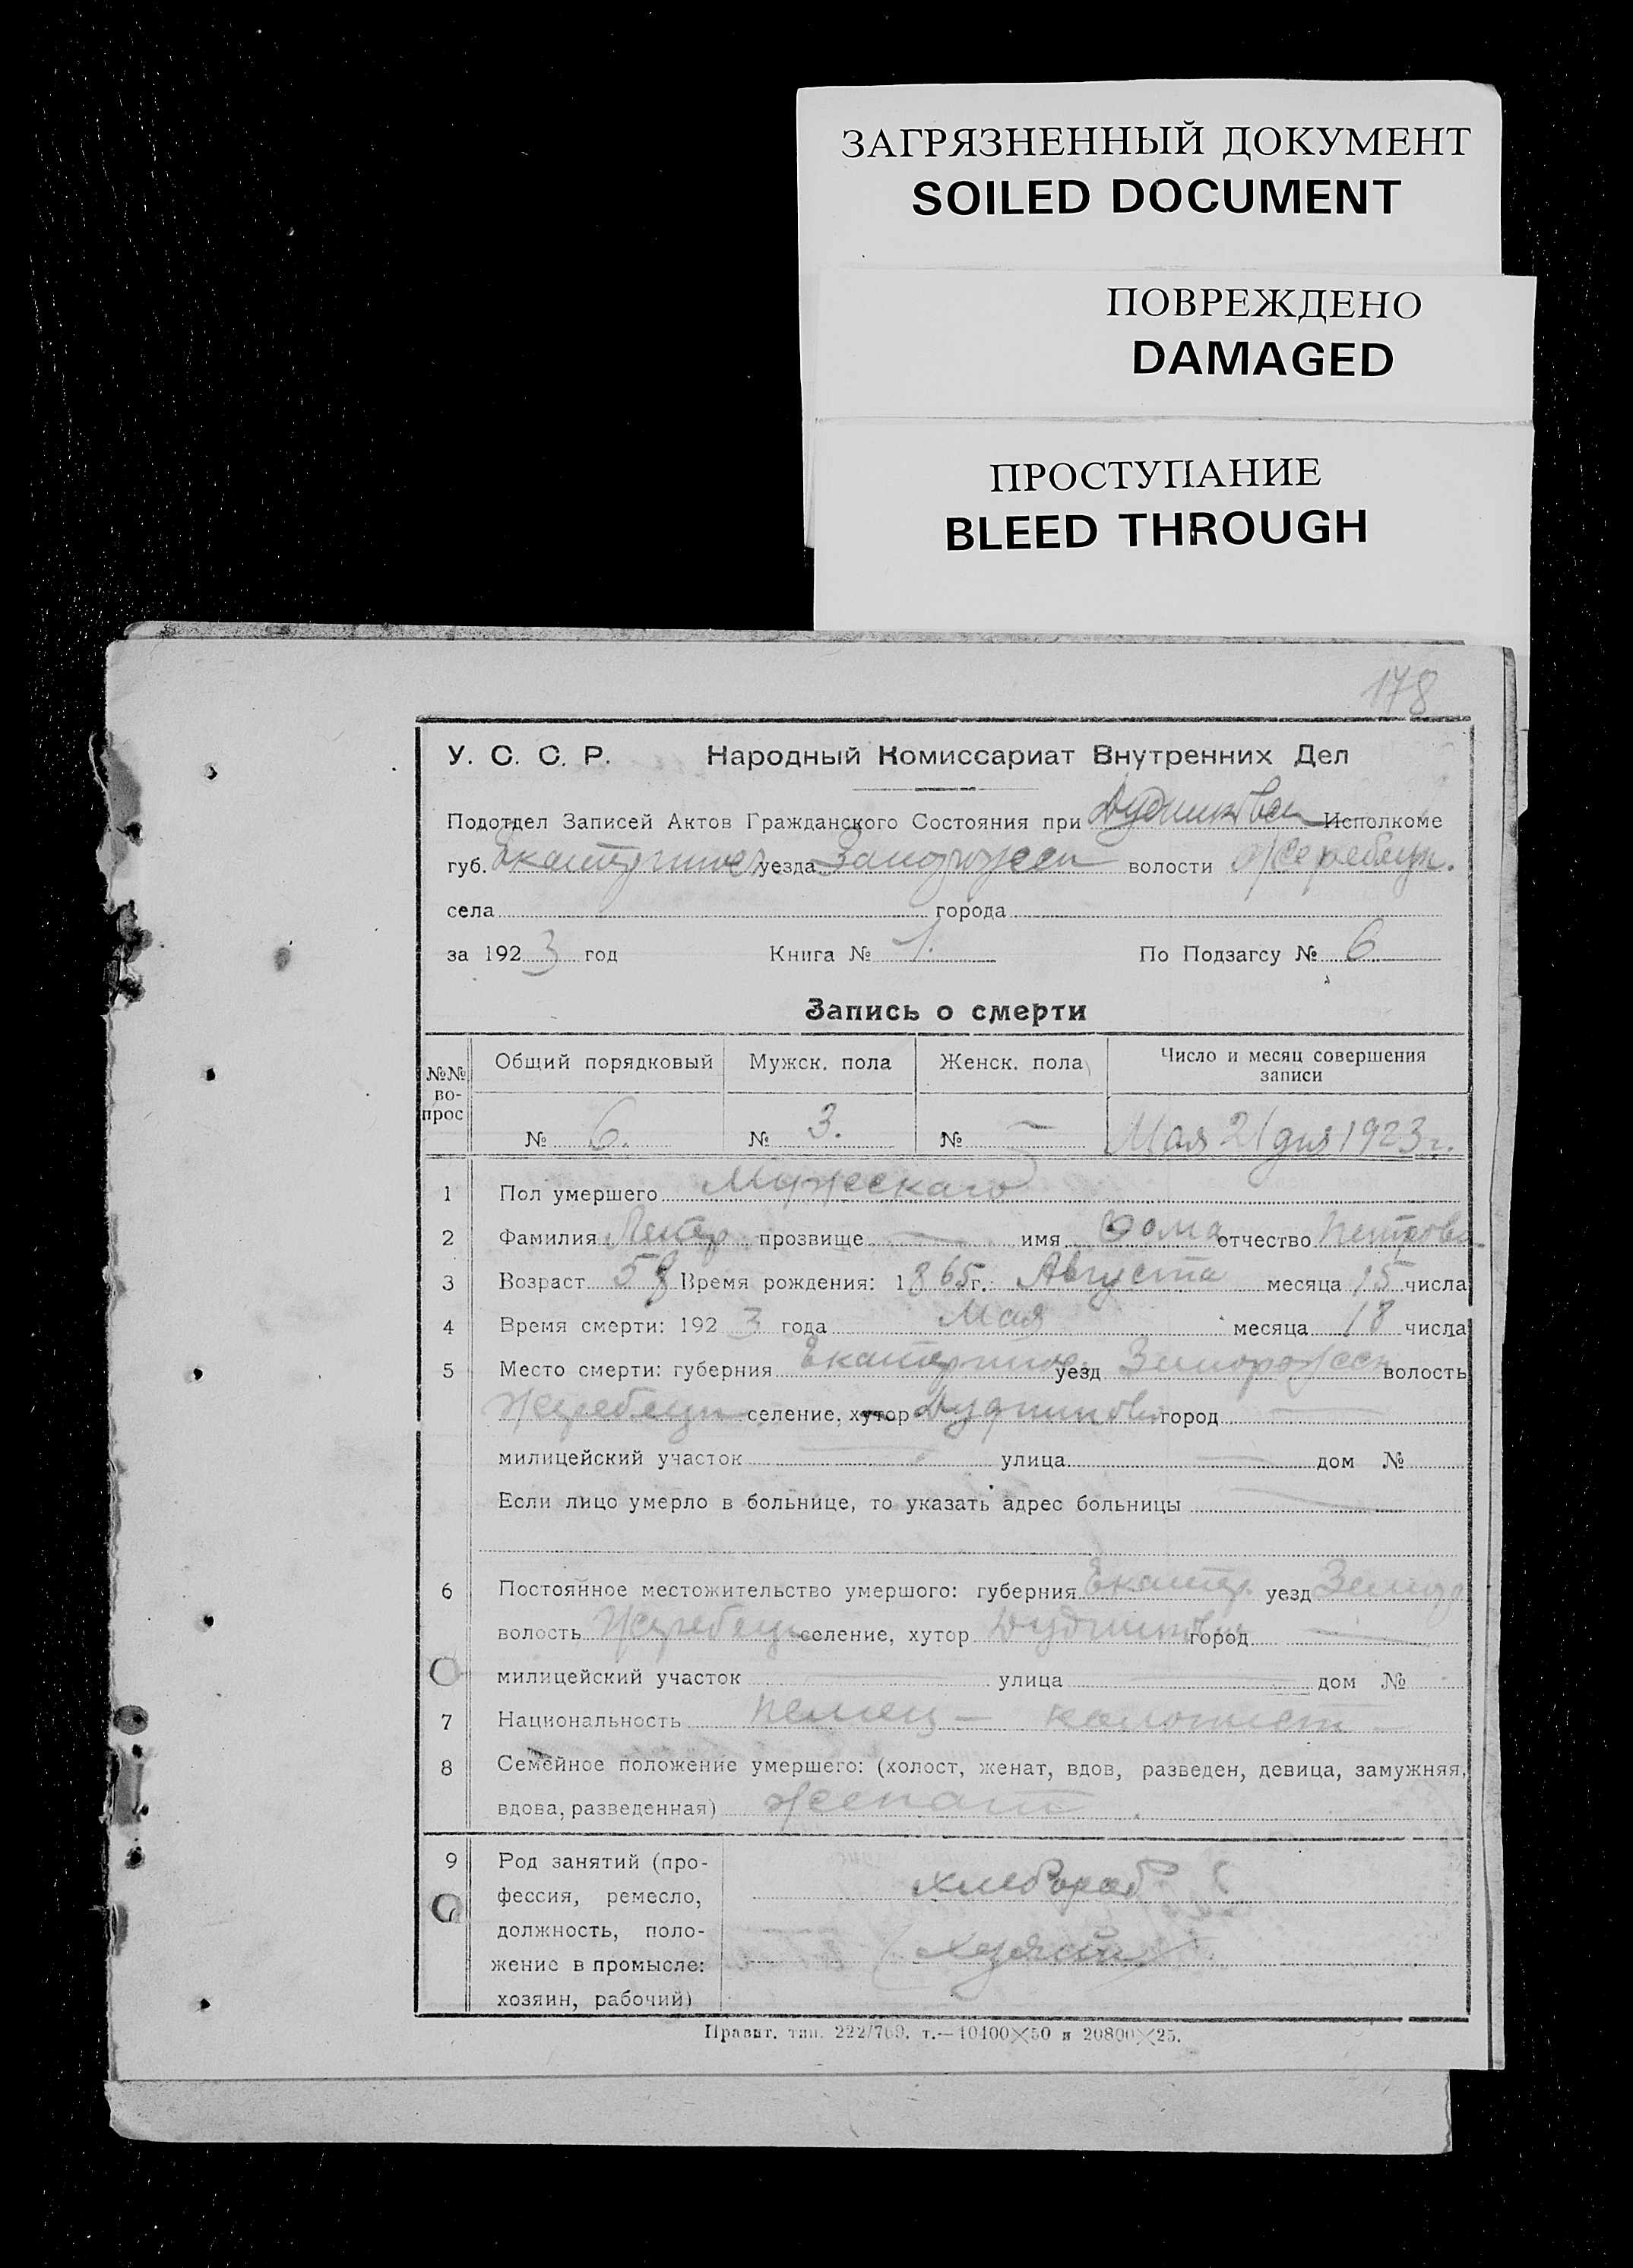 ЗАГРЯЗНЕННЫЙ ДОКУМЕНТ
SOILED DOCUMENT
ПОВРЕЖДЕНО
DAMAGED
ПРОСТУПАНИЕ
BLEED THROUGH
178
У. С. С. Р. Народный Комиссариат Внутренних Дел
Подотдел Записей Актов Гражданского Состояния при Исполкоме
губ. уезда волости Жеребецк.
села города
за 1923 год Книга № 1. По Подзагсу № 6
Запись о смерти
№№ вопрос Общий порядковый Мужск. пола Женск. пола Число и месяц совершения записи
№ 6. № 3. № — Мая 21 дня 1923 г.
1 Пол умершего Мужескаго
2 Фамилия прозвище — имя отчество
3 Возраст 58 Время рождения: 1865 г. Августа месяца 15 числа
4 Время смерти: 1923 года Мая месяца 18 числа
5 Место смерти: губерния уезд волость
селение, хутор город —
милицейский участок — улица — дом №
Если лицо умерло в больнице, то указать адрес больницы —
6 Постоянное местожительство умершого: губерния Екатер. уезд
волость селение, хутор город —
милицейский участок — улица — дом №
7 Национальность немец — колонист —
8 Семейное положение умершего: (холост, женат, вдов, разведен, девица, замужняя,
вдова, разведенная) женат
9 Род занятий (про-
фессия, ремесло, хлебороб
должность, поло-
жение в промысле:
хозяин, рабочий)
Правит. тип. 222/769. т.—10400×50 и 20800×25.